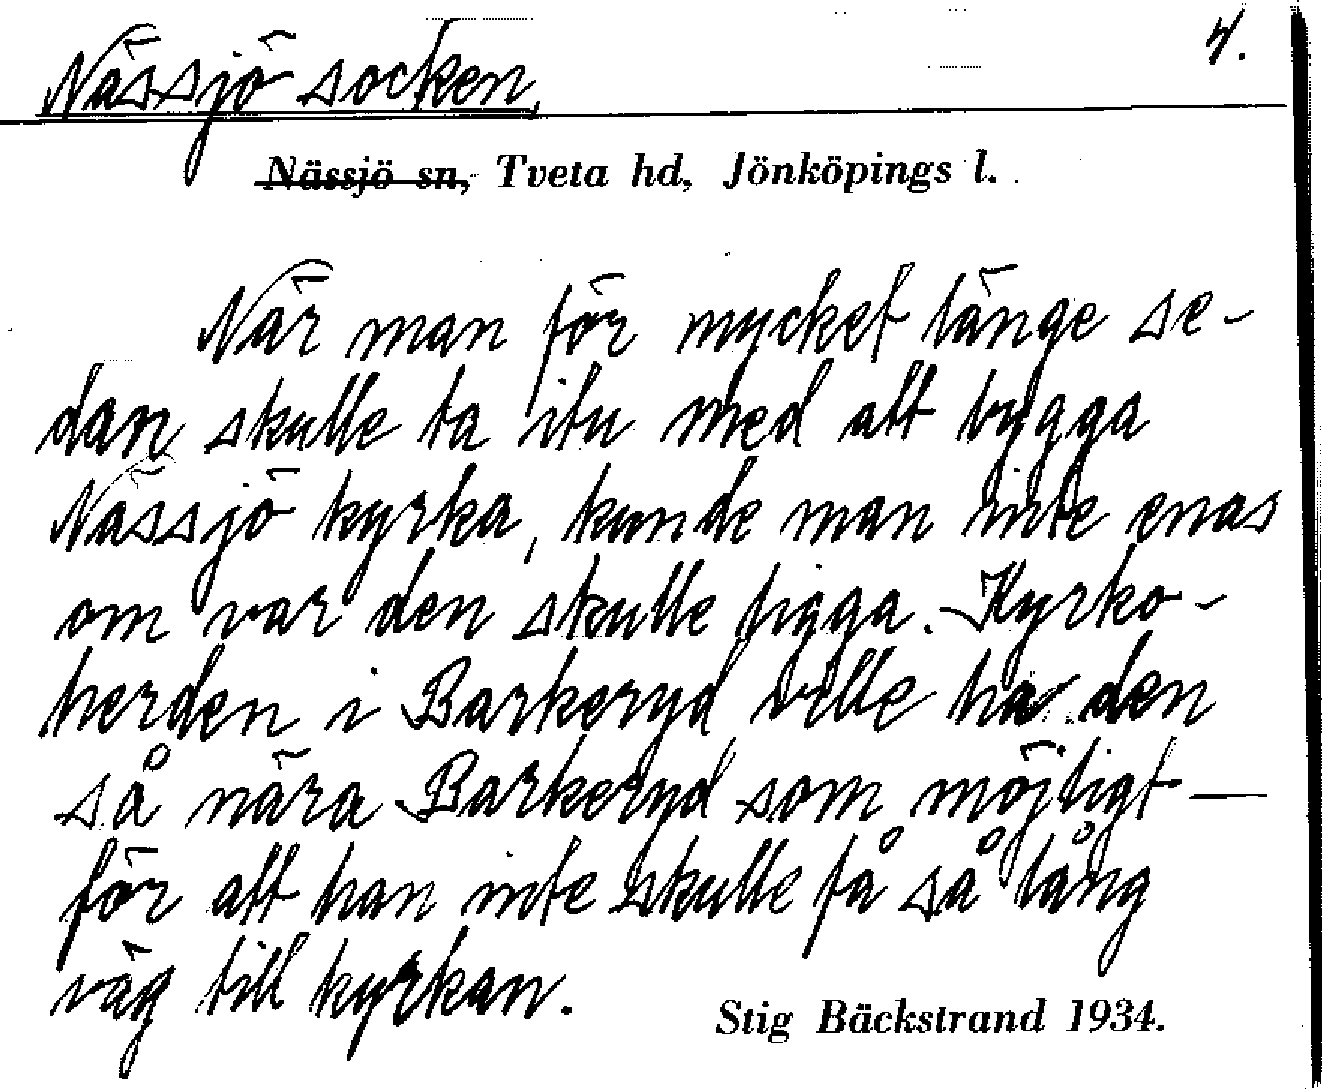 4.
Nässjö socken,
Nässjö sn, Tveta hd, Jönköpings l.
När man för mycket länge se-
dan skulle ta itu med att bygga
Nässjö kyrka, kunde man inte enas
om var den skulle ligga. Kyrko-
herden i Barkeryd ville ha den
så nära Barkeryd som möjligt —
för att han inte skulle få så lång
väg till kyrkan.
Stig Bäckstrand 1934.